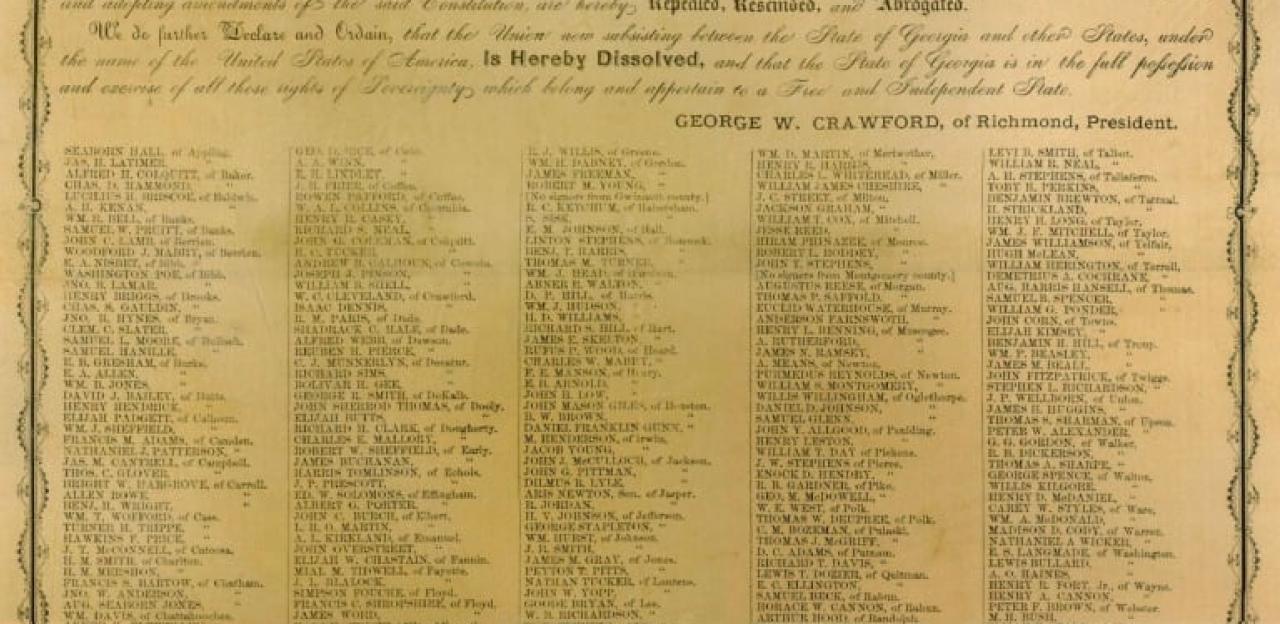 and adopting amendments of the said Constitution, are hereby Repealed, Rescinded, and Abrogated.
We do further Declare and Ordain, that the Union now subsisting between the State of Georgia and other States, under
the name of the United States of America, Is Hereby Dissolved, and that the State of Georgia is in the full possession
and exercise of all those rights of Sovereignty which belong and appertain to a Free and Independent State.
GEORGE W. CRAWFORD, of Richmond, President.
SEABORN HALL, of Appling.
JAS. H. LATIMER, "
ALFRED H. COLQUITT, of Baker.
CHAS. D. HAMMOND, "
LUCILIUS H. BRISCOE, of Baldwin.
A. H. KENAN, "
WM. R. BELL, of Banks.
SAMUEL W. PRUITT, of Banks.
JOHN C. LAMB, of Berrien.
WOODFORD J. MABRY, of Berrien.
E. A. NISBET, of Bibb.
WASHINGTON POE, of Bibb.
JNO. B. LAMAR, "
HENRY BRIGGS, of Brooks.
CHAS. S. GAULDIN, "
JNO. B. HYNES, of Bryan.
CLEM. C. SLATER, "
SAMUEL L. MOORE, of Bulloch.
SAMUEL HANILLE, "
E. B. GRESHAM, of Burke.
E. A. ALLEN, "
WM. B. JONES, "
DAVID J. BAILEY, of Butts.
HENRY HENDRICK, "
ELIJAH PADGETT, of Calhoun.
WM. J. SHEFFIELD, "
FRANCIS M. ADAMS, of Camden.
NATHANIEL J. PATTERSON, "
JAS. M. CANTRELL, of Campbell.
THOS. C. GLOVER, "
BRIGHT W. HARGROVE, of Carroll.
ALLEN ROWE, "
BENJ. H. WRIGHT, "
WM. T. WOFFORD, of Cass.
TURNER H. TRIPPE, "
HAWKINS F. PRICE, "
J. T. McCONNELL, of Catoosa.
H. M. SMITH, of Charlton.
H. M. MERSHON, "
FRANCIS S. BARTOW, of Chatham.
JNO. W. ANDERSON, "
AUG. SEABORN JONES, "
WM. DAVIS, of Chattahoochee.
GEO. D. RICE, of Cobb.
A. A. WINN, "
E. H. LINDLEY, "
J. H. FRIER, of Coffee.
ROWEN PAFFORD, of Coffee.
W. A. L. COLLINS, of Columbia.
HENRY R. CASEY, "
RICHARD S. NEAL, "
JOHN G. COLEMAN, of Colquitt.
H. C. TUCKER, "
ANDREW B. CALHOUN, of Coweta.
JOSEPH J. PINSON, "
WILLIAM B. SHELL, "
W. C. CLEVELAND, of Crawford.
ISAAC DENNIS, "
R. M. PARIS, of Dade.
SHADRACK C. HALE, of Dade.
ALFRED WEBB, of Dawson.
REUBEN H. PIERCE, "
C. J. MUNNERLYN, of Decatur.
RICHARD SIMS, "
BOLIVAR H. GEE, "
GEORGE R. SMITH, of DeKalb.
JOHN SHERROD THOMAS, of Dooly.
ELIJAH BUTTS, "
RICHARD H. CLARK, of Dougherty.
CHARLES E. MALLORY, "
ROBERT W. SHEFFIELD, of Early.
JAMES BUCHANAN, "
HARRIS TOMLINSON, of Echols.
J. P. PRESCOTT, "
ED. W. SOLOMONS, of Effingham.
ALBERT G. PORTER, "
JOHN C. BURCH, of Elbert.
L. H. O. MARTIN, "
A. L. KIRKLAND, of Emanuel.
JOHN OVERSTREET, "
ELIJAH W. CHASTAIN, of Fannin.
MIAL M. THOWELL, of Fayette.
J. L. BLALOCK, "
SIMPSON FOUCHE, of Floyd.
FRANCIS C. SHROPSHIRE, of Floyd.
JAMES WORD, "
R. J. WILLIS, of Greene.
WM. H. DABNEY, of Gordon.
JAMES FREEMAN, "
ROBERT M. YOUNG, "
[No signers from Gwinnett county.]
R. C. KETCHUM, of Habersham.
S. SISK, "
E. M. JOHNSON, of Hall.
LINTON STEPHENS, of Hancock.
BENJ. T. HARRIS, "
THOMAS M. TURNER, "
WM. J. HEAD, of Haralson.
ABNER R. WALTON, "
D. P. HILL, of Harris.
WM. J. HUDSON, "
H. D. WILLIAMS, "
RICHARD S. HILL, of Hart.
JAMES E. SKELTON, "
RUFUS P. WOOD, of Heard.
CHARLES W. MABRY, "
F. E. MANSON, of Henry.
E. B. ARNOLD, "
JOHN H. LOW, "
JOHN MASON GILES, of Houston.
B. W. BROWN, "
DANIEL FRANKLIN GUNN, "
M. HENDERSON, of Irwin.
JACOB YOUNG, "
JOHN J. McCULLOCH, of Jackson.
JOHN G. PITTMAN, "
DILMUS R. LYLE, "
ARIS NEWTON, Sen. of Jasper.
R. JORDAN, "
H. V. JOHNSON, of Jefferson.
GEORGE STAPLETON, "
WM. HURST, of Johnson.
J. R. SMITH, "
JAMES M. GRAY, of Jones.
PEYTON T. PITTS, "
NATHAN TUCKER, of Laurens.
JOHN W. YOPP, "
GOODE BRYAN, of Lee.
W. B. RICHARDSON, "
WM. D. MARTIN, of Meriwether.
HENRY R. HARRIS, "
CHARLES L. WHITEHEAD, of Miller.
WILLIAM JAMES CHESHIRE, "
J. C. STREET, of Milton.
JACKSON GRAHAM, "
WILLIAM T. COX, of Mitchell.
JESSE REED, "
HIRAM PHINAZEE, of Monroe.
ROBERT L. RODDEY, "
JOHN T. STEPHENS, "
[No signers from Montgomery county.]
AUGUSTUS REESE, of Morgan.
THOMAS P. SAFFOLD, "
EUCLID WATERHOUSE, of Murray.
ANDERSON FARNSWORTH, "
HENRY L. BENNING, of Muscogee.
A. RUTHERFORD, "
JAMES N. RAMSEY, "
A. MEANS, of Newton.
PURMEDUS REYNOLDS, of Newton.
WILLIAM S. MONTGOMERY, "
WILLIS WILLINGHAM, of Oglethorpe.
DANIEL D. JOHNSON, "
SAMUEL GLENN, "
JOHN Y. ALLGOOD, of Paulding.
HENRY LESTON, "
WILLIAM T. DAY of Pickens.
J. W. STEPHENS of Pierce.
ENOCH D. HENDRY, "
R. B. GARDNER, of Pike.
GEO. M. McDOWELL, "
W. E. WEST, of Polk.
THOMAS W. DEUPREE, of Polk.
C. M. BOZEMAN, of Pulaski.
THOMAS J. McGRIFF, "
D. C. ADAMS, of Putnam.
RICHARD T. DAVIS, "
LEWIS T. DOZIER, of Quitman.
E. C. ELLINGTON, "
SAMUEL BECK, of Rabun.
HORACE W. CANNON, of Rabun.
ARTHUR HOOD, of Randolph.
LEVI B. SMITH, of Talbot.
WILLIAM R. NEAL, "
A. H. STEPHENS, of Taliaferro.
TOBY B. PERKINS, "
BENJAMIN BREWTON, of Tattnal.
H. STRICKLAND, "
HENRY H. LONG, of Taylor.
WM. J. F. MITCHELL, of Taylor.
JAMES WILLIAMSON, of Telfair.
HUGH McLEAN, "
WILLIAM HERINGTON, of Terrell.
DEMETRIUS A. COCHRANE, "
AUG. HARRIS HANSELL, of Thomas.
SAMUEL B. SPENCER, "
WILLIAM G. PONDER, "
JOHN CORN, of Towns.
ELIJAH KIMSEY, "
BENJAMIN H. HILL, of Troup.
WM. P. BEASLEY, "
JAMES M. BEALL, "
JOHN FITZPATRICK, of Twiggs.
STEPHEN L. RICHARDSON, "
J. P. WELLBORN, of Union.
JAMES H. HUGGINS, "
THOMAS S. SHARMAN, of Upson.
PETER W. ALEXANDER, "
G. G. GORDON, of Walker.
R. B. DICKERSON, "
THOMAS A. SHARPE, "
GEORGE SPENCE, of Walton.
WILLIS KILGORE, "
HENRY D. McDANIEL, "
CAREY W. STYLES, of Ware.
WM. A. McDONALD, "
MADISON D. CODY, of Warren.
NATHANIEL A WICKER, "
E. S. LANGMADE, of Washington.
LEWIS BULLARD, "
A. C. HAINES, "
HENRY R. FORT, Jr., of Wayne.
HENRY A. CANNON, "
PETER F. BROWN, of Webster.
M. H. BUSH, "